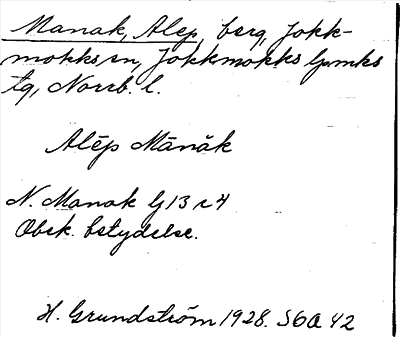 Manak, Alep, berg, Jokk-
mokks sn, Jokkmokks lpmks
tg, Norrb. l.
Alēp Mānăk
N. Manak G 13 c 4
Obek. betydelse.
H. Grundström 1928. S6A 42